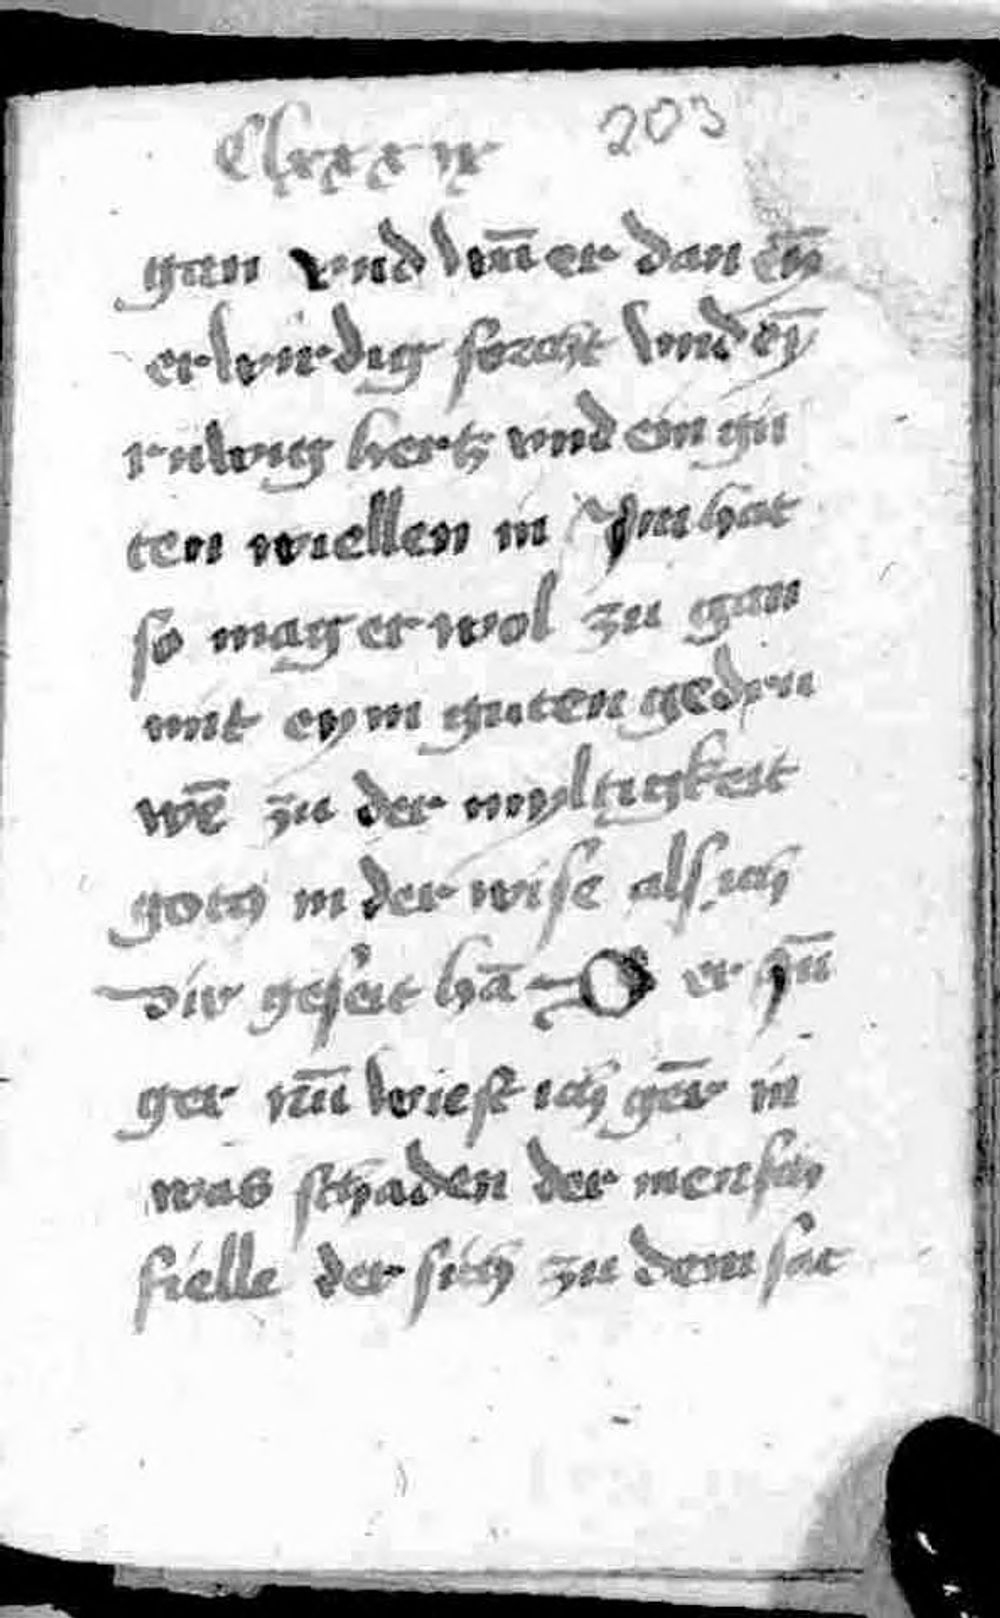 Clxxxix 203
gan vnd wañ er dan eȳ
erwirdig forcht vnd eȳ
rüwig hertz vnd ein gü
ten wiellen in Im hat
so mag er wol zu gan
mit eym guten gedru
wē zu der myltigkeit
gotz in der wise als ich
dir geseit hā O er Jū
ger nūn wiest ich gēr in
was schaden der mensch
fielle der sich zu dem sac